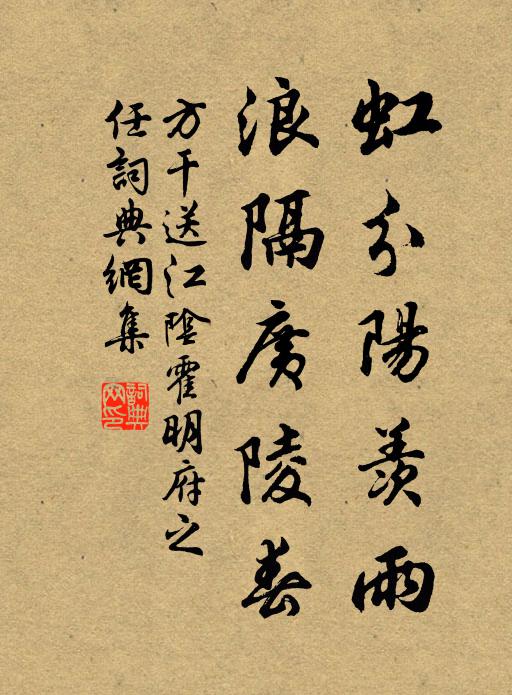 虹分陽羨雨
浪隔廣陵春
方干送江陰霍明府之
任詞典網集
詞典
网印